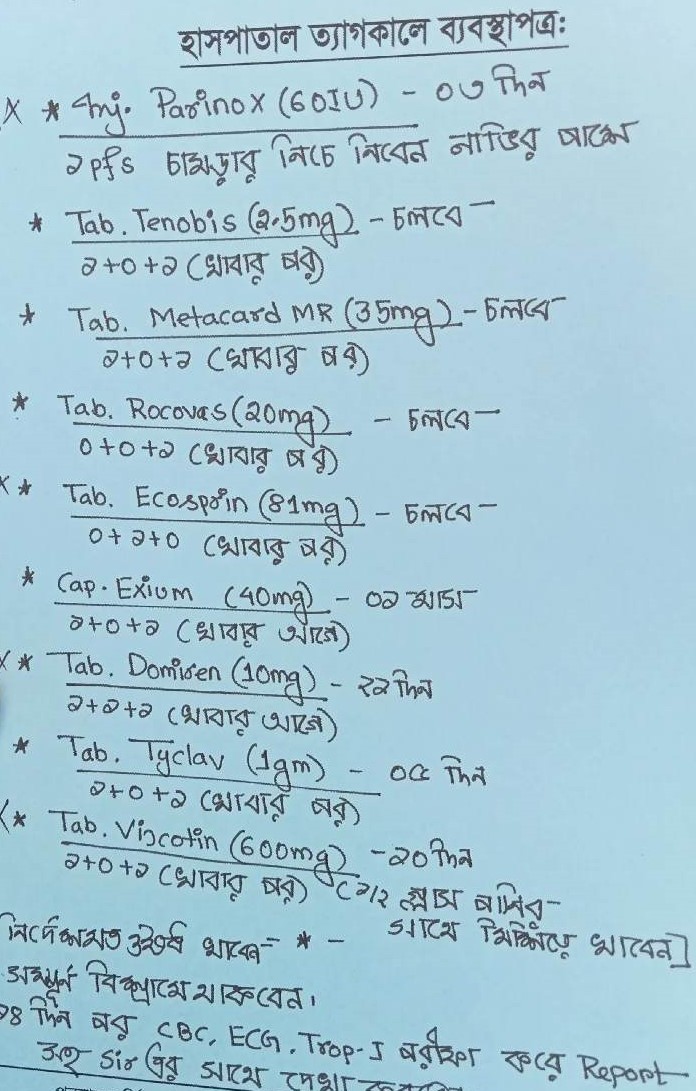 হাসপাতাল ত্যাগকালে ব্যবস্থাপত্র:
X * Inj. Parinox (60IU) - ০৩ দিন
১ pfs চামড়ার নিচে নিবেন নাভির পাশে
* Tab. Tenobis (2.5mg) - চলবে -
১+০+১ (খাবার পর)
* Tab. Metacard MR (35mg) - চলবে -
১+০+১ (খাবার পর)
* Tab. Rocovas (20mg) - চলবে -
০+০+১ (খাবার পর)
X * Tab. Ecosprin (81mg) - চলবে -
০+১+০ (খাবার পর)
* Cap. Exium (40mg) - ০১ মাস
১+০+১ (খাবার আগে)
X * Tab. Domiren (10mg) - ২১ দিন
১+১+১ (খাবার আগে)
* Tab. Tyclav (1gm) - ০৫ দিন
১+০+১ (খাবার পর)
X * Tab. Viscotin (600mg) - ১০ দিন
১+০+১ (খাবার পর) (১/২ গ্লাস পানির -
সাথে মিশিয়ে খাবেন]
নির্দেশমত ঔষধ খাবেন - * -
সম্পূর্ণ বিশ্রামে থাকবেন।
১৪ দিন পর CBC, ECG, Trop-I পরীক্ষা করে Report
সহ Sir এর সাথে দেখা